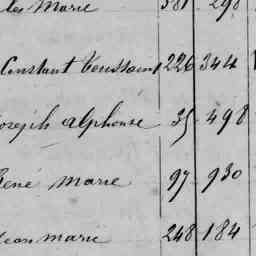 les Marie 381 298
Constant Toussaint 226 344
Joseph Alphonse 35 498
René Marie 97 930
Jean Marie 248 184